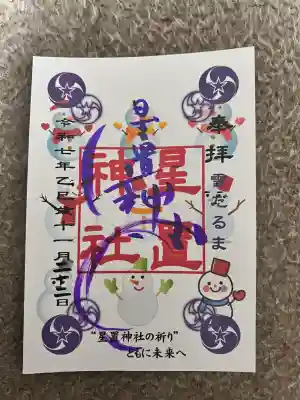 奉拝
雪だるま
星置神社
星置神社
令和七年乙巳歳十一月二十二日
"星置神社の祈り"
ともに未来へ